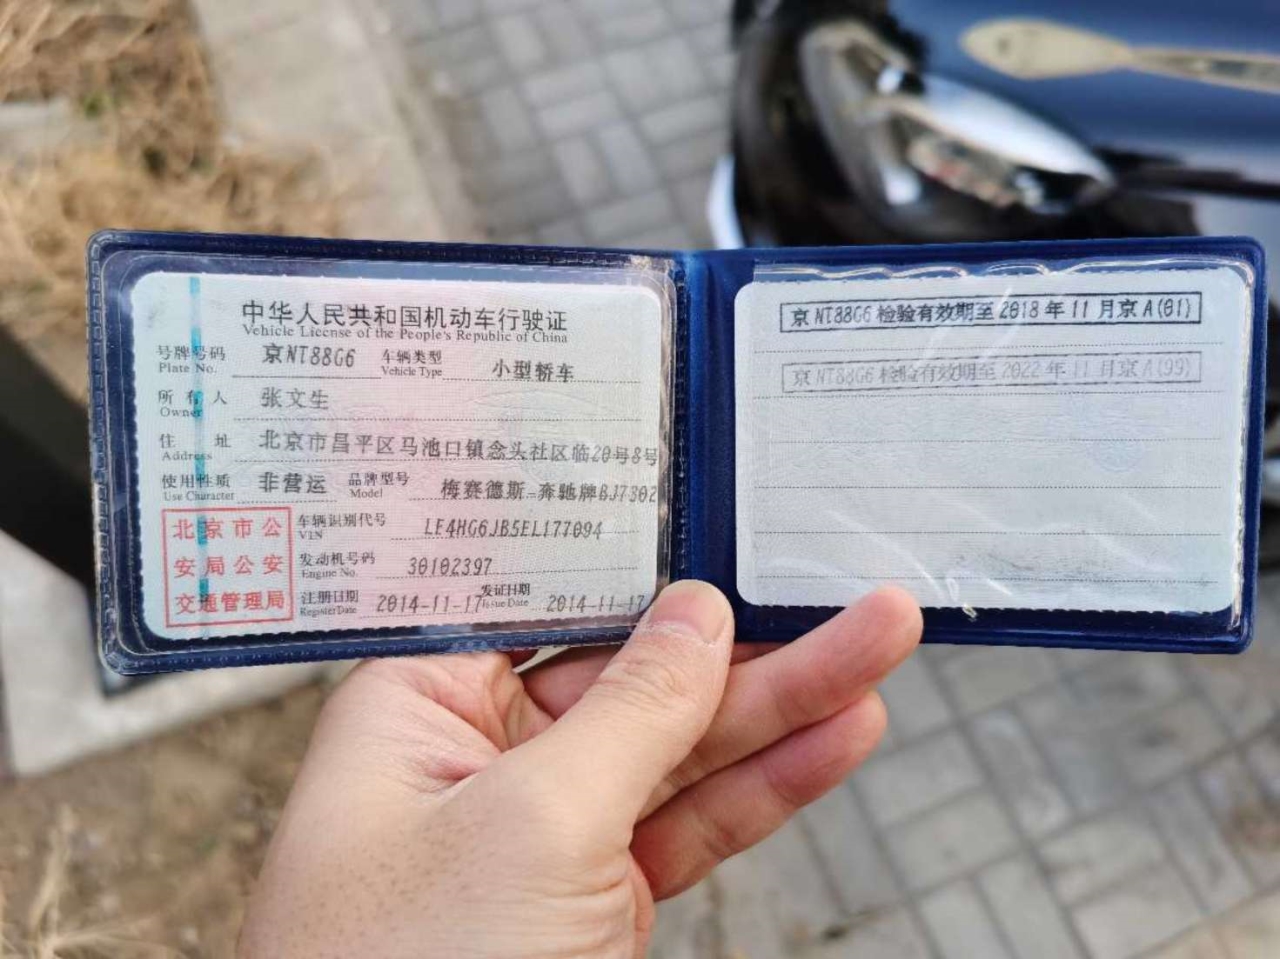 中华人民共和国机动车行驶证
Vehicle License of the People's Republic of China
号牌号码 京NT88G6 车辆类型 小型轿车
Plate No. Vehicle Type
所有人 张文生
Owner
住址 北京市昌平区马池口镇念头社区临20号8号
Address
使用性质 非营运 品牌型号 梅赛德斯-奔驰牌BJ7302
Use Character Model
北京市公
安局公安
交通管理局
车辆识别代号 LE4HG6JB5EL177094
VIN
发动机号码 30102397
Engine No.
注册日期 2014-11-17 发证日期 2014-11-17
Register Date Issue Date
京NT88G6检验有效期至2018年11月京A(01)
京NT88G6检验有效期至2022年11月京A(99)